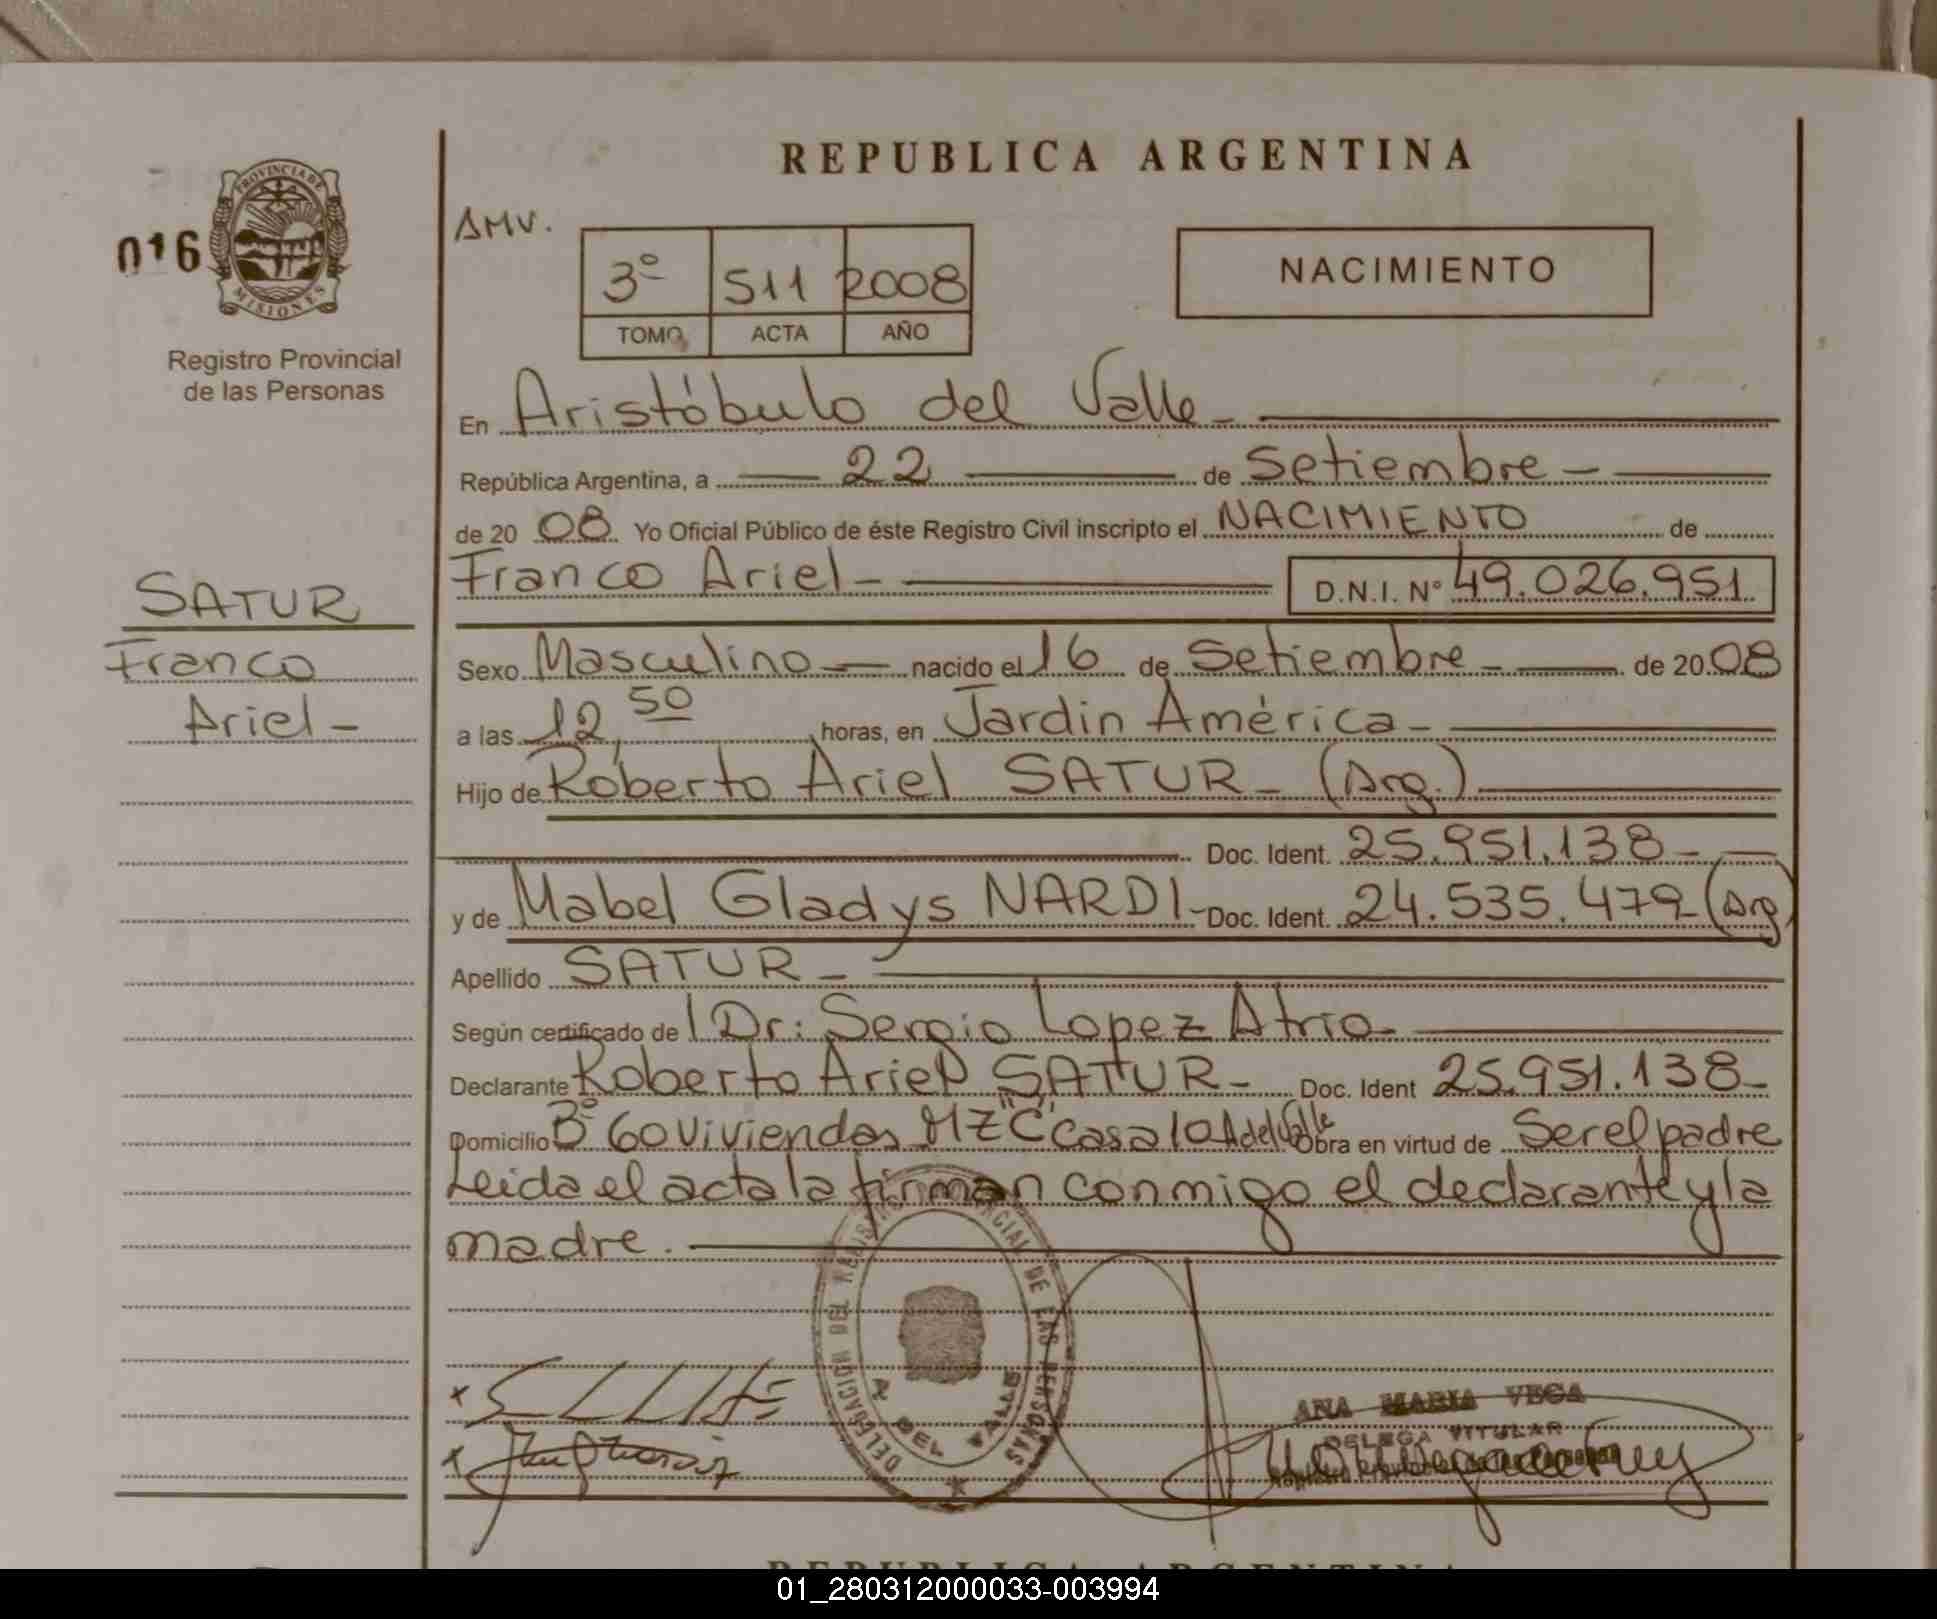 REPUBLICA ARGENTINA
PROVINCIA DE
MISIONES
016
Registro Provincial
de las Personas
AMV.
3º 511 2008
TOMO ACTA AÑO
NACIMIENTO
En Aristóbulo del Valle -
República Argentina, a 22 de Setiembre -
de 20 08 Yo Oficial Público de éste Registro Civil inscripto el NACIMIENTO de
Franco Ariel - D.N.I. Nº 49.026.951
SATUR
Franco
Ariel -
Sexo Masculino nacido el 16 de Setiembre - de 20 08
a las 12,50 horas, en Jardin América -
Hijo de Roberto Ariel SATUR - (Arg.)
Doc. Ident. 25.951.138 -
y de Mabel Gladys NARDI - Doc. Ident. 24.535.479 - (Arg)
Apellido SATUR -
Según certificado de l Dr: Sergio Lopez Atrio -
Declarante Roberto Ariel SATUR - Doc. Ident 25.951.138 -
Domicilio Bº 60 Viviendas MZ "C" Casa 10 A del Valle Obra en virtud de Ser el padre
Leida el acta la firman conmigo el declarante y la
madre.
DELEGACION DEL REGISTRO PROVINCIAL DE LAS PERSONAS
A. DEL VALLE
ANA MARIA VEGA
DELEGA TITULAR
REPUBLICA ARGENTINA
01_280312000033-003994